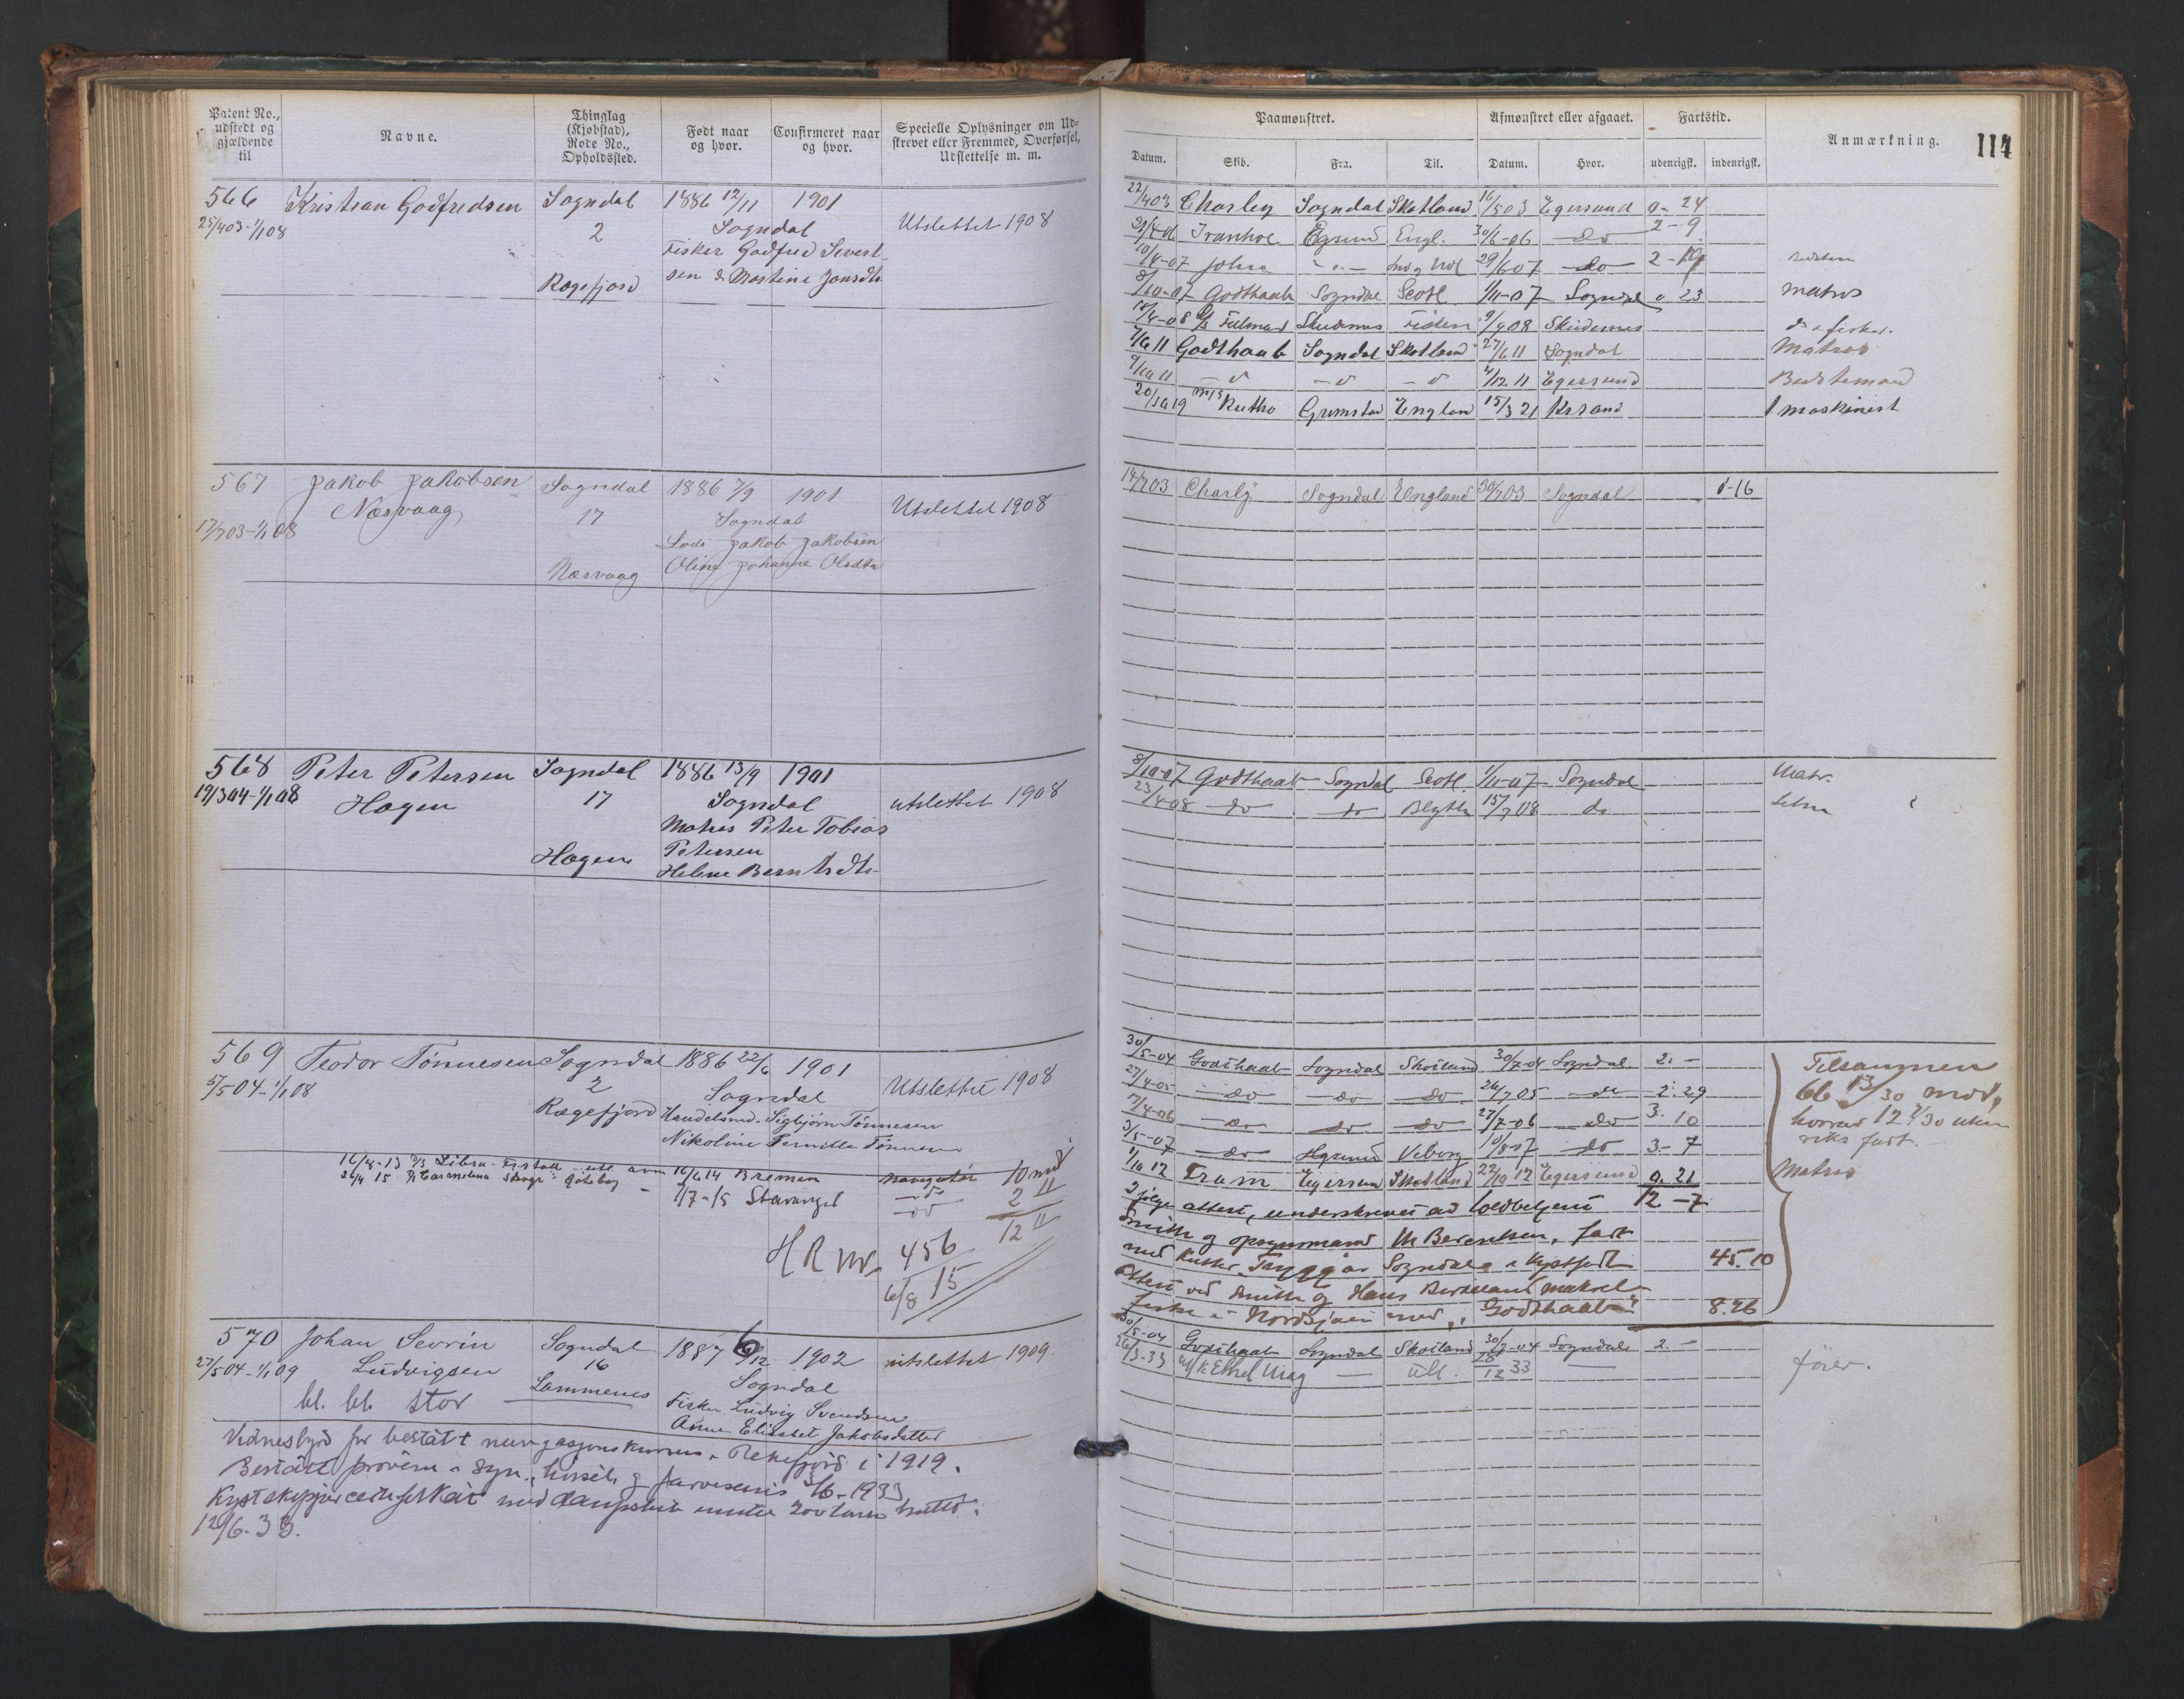 Patent No.,
udstedt og
gjældende
til
Navne.
Thinglag
(Kjøbstad),
Rode No.,
Opholdssted.
Født naar
og hvor.
Confirmeret naar
og hvor.
Specielle Oplysninger om Ud-
skrevet eller Fremmed, Overførsel,
Udslettelse m. m.
566 Kristian Godfredsen Sogndal 1886 12/11 1901
25/4 03 - 1/1 08 2 Sogndal Utslettet 1908
Fisker Godfred Sivert-
Rægefjord sen & Martine Jansdtr
567 Jakob Jakobsen Sogndal 1886 7/9 1901
Næsvaag Utslettet 1908
17/7 03 - 1/1 08 17 Sogndal
Lods Jakob Jakobsen
Næsvaag Oline Johanne Olsdtr
568 Peter Petersen Sogndal 1886 13/9 1901
19/3 04 - 1/1 08 Hagen 17 Sogndal utslettet 1908
Matros Peter Tobias
Hagen Petersen
Helene Berntsdtr
569 Teodor Tønnesen Sogndal 1886 22/6 1901
5/5 04 - 1/1 08 2 Sogndal Utslettet 1908
Rægefjord Handelsmd. Sigbjørn Tønnesen
Nikoline Pernille Tønnesen
16/8-13 D/S Libra 16/6 14 Bremen navigatør 10 md
26/4 15 Göteborg - 7/7-15 Stavanger - do - 2 "
12 "
H R nr. 456
6/8 15
570 Johan Severin Sogndal 1887 6/12 1902 utslettet 1909
27/5 04 - 1/1 09 Ludvigsen 16 Sogndal
bl. bl. stor Lammenes Fisker Ludvig Svendsen
Anne Elisabet Jakobsdatter
Vidnesbyrd for bestått navigasjonskursus i Rekefjord i 1919.
Bestått prøvene i syn, hørsel og farvesans 3/6-1933
Kystskippercertifikat med dampskib under 200 tons brutto.
12/6-33.
Paamønstret.
Afmønstret eller afgaaet.
Fartstid.
Anmærkning.
114
Datum.
Skib.
Fra.
Til.
Datum.
Hvor.
udenrigsk.
indenrigsk.
22/4 03 Charley Sogndal Skotland 16/5 03 Egersund 0 - 24
Ivanhoe Egersund Engl. 30/6-06 do 2 - 9
10/4-07 Johra - " - 29/6 07 do 2 - 19
8/10-07 Godthaab Sogndal Scotl. 1/11-07 Sogndal 0 23 matros
18/4-08 D/S Fulmar Skudenes Fisken 9/7 08 Skudenes
7/6 11 Godthaab Sogndal Skotland 27/6 11 Sogndal Matros
9/10 11 - " - " - " 4/12 11 Egersund Bestemand
20/10 19 M/S Rutho Grimstad England 15/3 21 Krsand 1 maskinist
14/7 03 Charly Sogndal England 30/7 03 Sogndal 0-16
8/10-07 Godthaab Sogndal Scotl. 1/11-07 Sogndal Matr.
23/4-08 do do Blyth 15/7 08 do
30/5-04 Godthaab Sogndal Skotland 30/7-04 Sogndal 2. -
27/4-05 do do do 26/7 05 do 2. 29
17/4-06 do do do 27/7-06 do 3. 10
3/5-07 do Egersund Viborg 10/8 07 do 3- 7
1/10 12 Fram Egersund Skotland 22/10 12 Egersund 0. 21
12 - 7
Tilsammen
66 13/30 mdr,
hvorav 12 7/30 uten
riks fart.
Matros
Ifølge attest, underskrevet av toldbetjent
Smith og opsynsmand M Berentsen, fart
med kutter "Trygg" av Sogndal i kystfart 45. 10
Attest ved Smith og Hans Birkeland makrel-
fiske i Nordsjøen med "Godthaab" 8. 26
30/5-04 Godthaab Sogndal Skotland 30/7-04 Sogndal 2. -
26/3-33 M/K Ethel Utl. 28/12 33 fører.